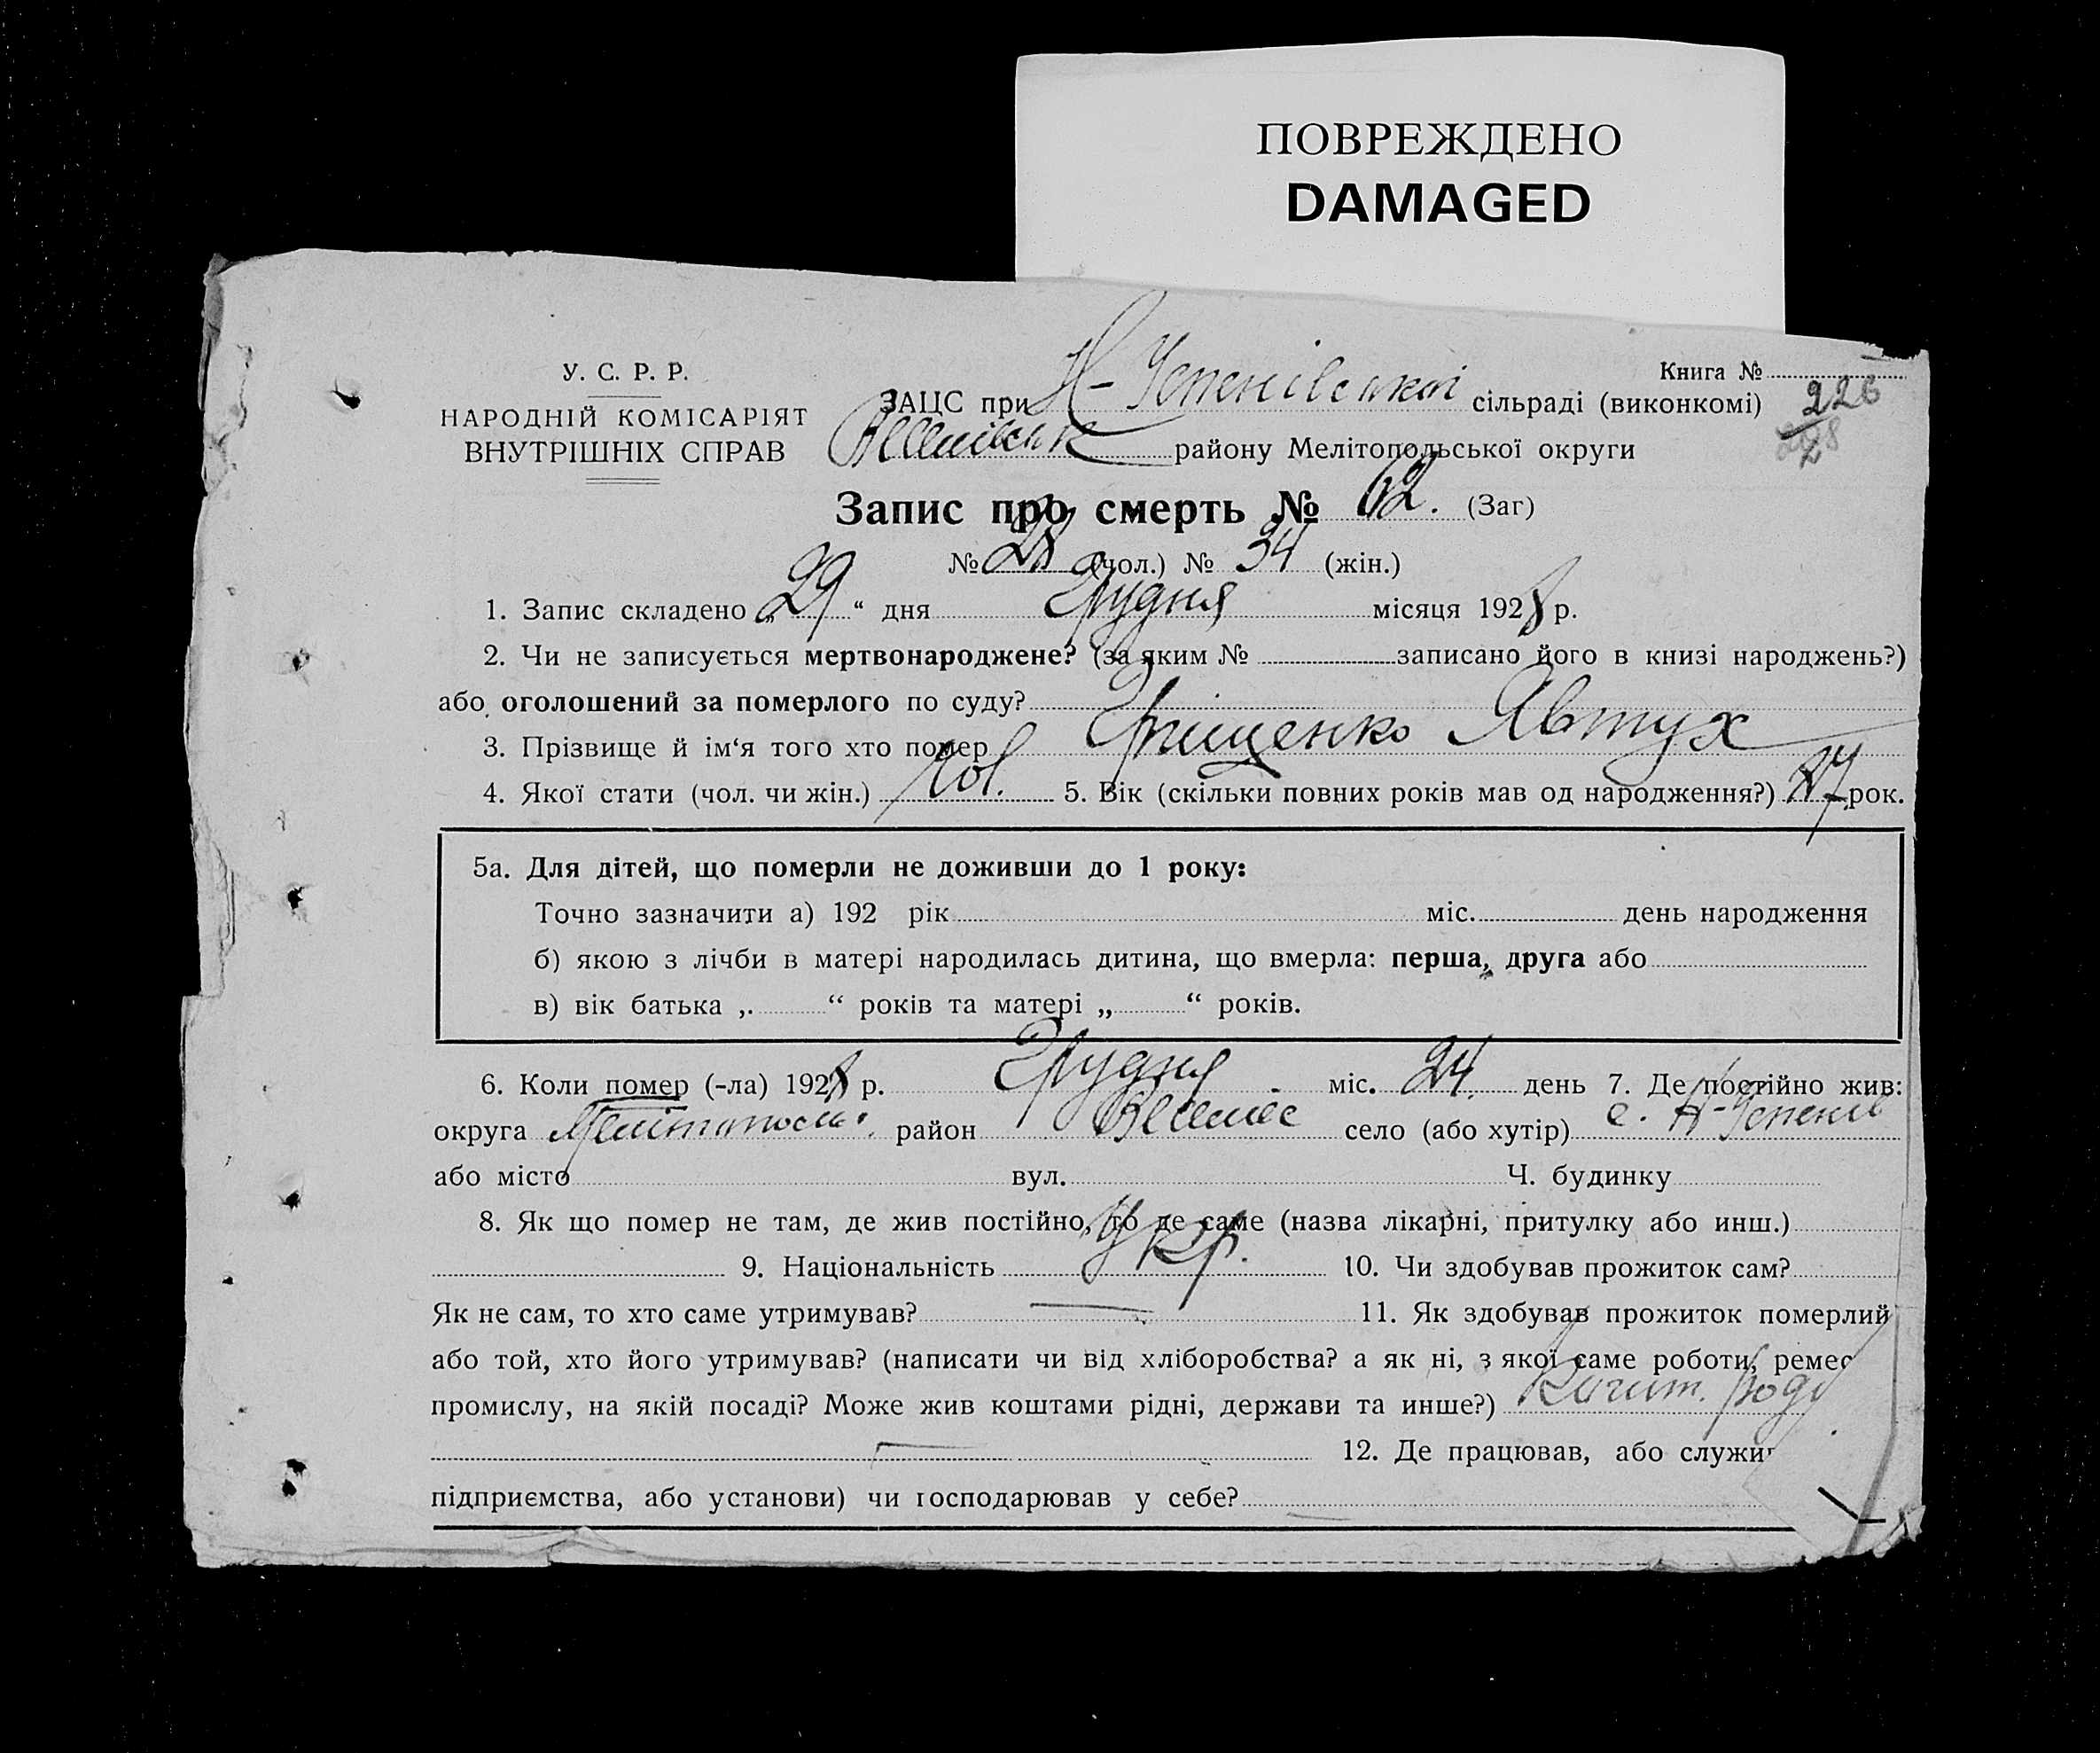 ПОВРЕЖДЕНО
DAMAGED
Книга №
У. С. Р. Р.
НАРОДНІЙ КОМІСАРІЯТ
ВНУТРІШНІХ СПРАВ
ЗАЦС при Н-Успенівській сільраді (виконкомі) 226
району Мелітопольської округи
Запис про смерть № 62. (Заг)
№ 28 (чол.) № 34 (жін.)
1. Запис складено „29“ дня Грудня місяця 1928 р.
2. Чи не записується мертвонароджене? (за яким № записано його в книзі народжень?)
або оголошений за померлого по суду?
3. Прізвище й ім‘я того хто помер Грищенко Явтух
4. Якої стати (чол. чи жін.) чол. 5. Вік (скільки повних років мав од народження?) 27 рок.
5а. Для дітей, що померли не доживши до 1 року:
Точно зазначити а) 192 рік міс. день народження
б) якою з лічби в матері народилась дитина, що вмерла: перша, друга або
в) вік батька „ “ років та матері „ “ років.
6. Коли помер (-ла) 1928 р. Грудня міс. 24 день 7. Де постійно жив:
округа Мелітополь. район Веселівс село (або хутір) с. Н-Успенів
або місто вул. Ч. будинку
8. Як що помер не там, де жив постійно, то де саме (назва лікарні, притулку або инш.)
9. Національність Укр. 10. Чи здобував прожиток сам?
Як не сам, то хто саме утримував? 11. Як здобував прожиток померлий
або той, хто його утримував? (написати чи від хліборобства? а як ні, з якої саме роботи, ремес
промислу, на якій посаді? Може жив коштами рідні, держави та инше?)
12. Де працював, або служи
підприємства, або установи) чи господарював у себе?